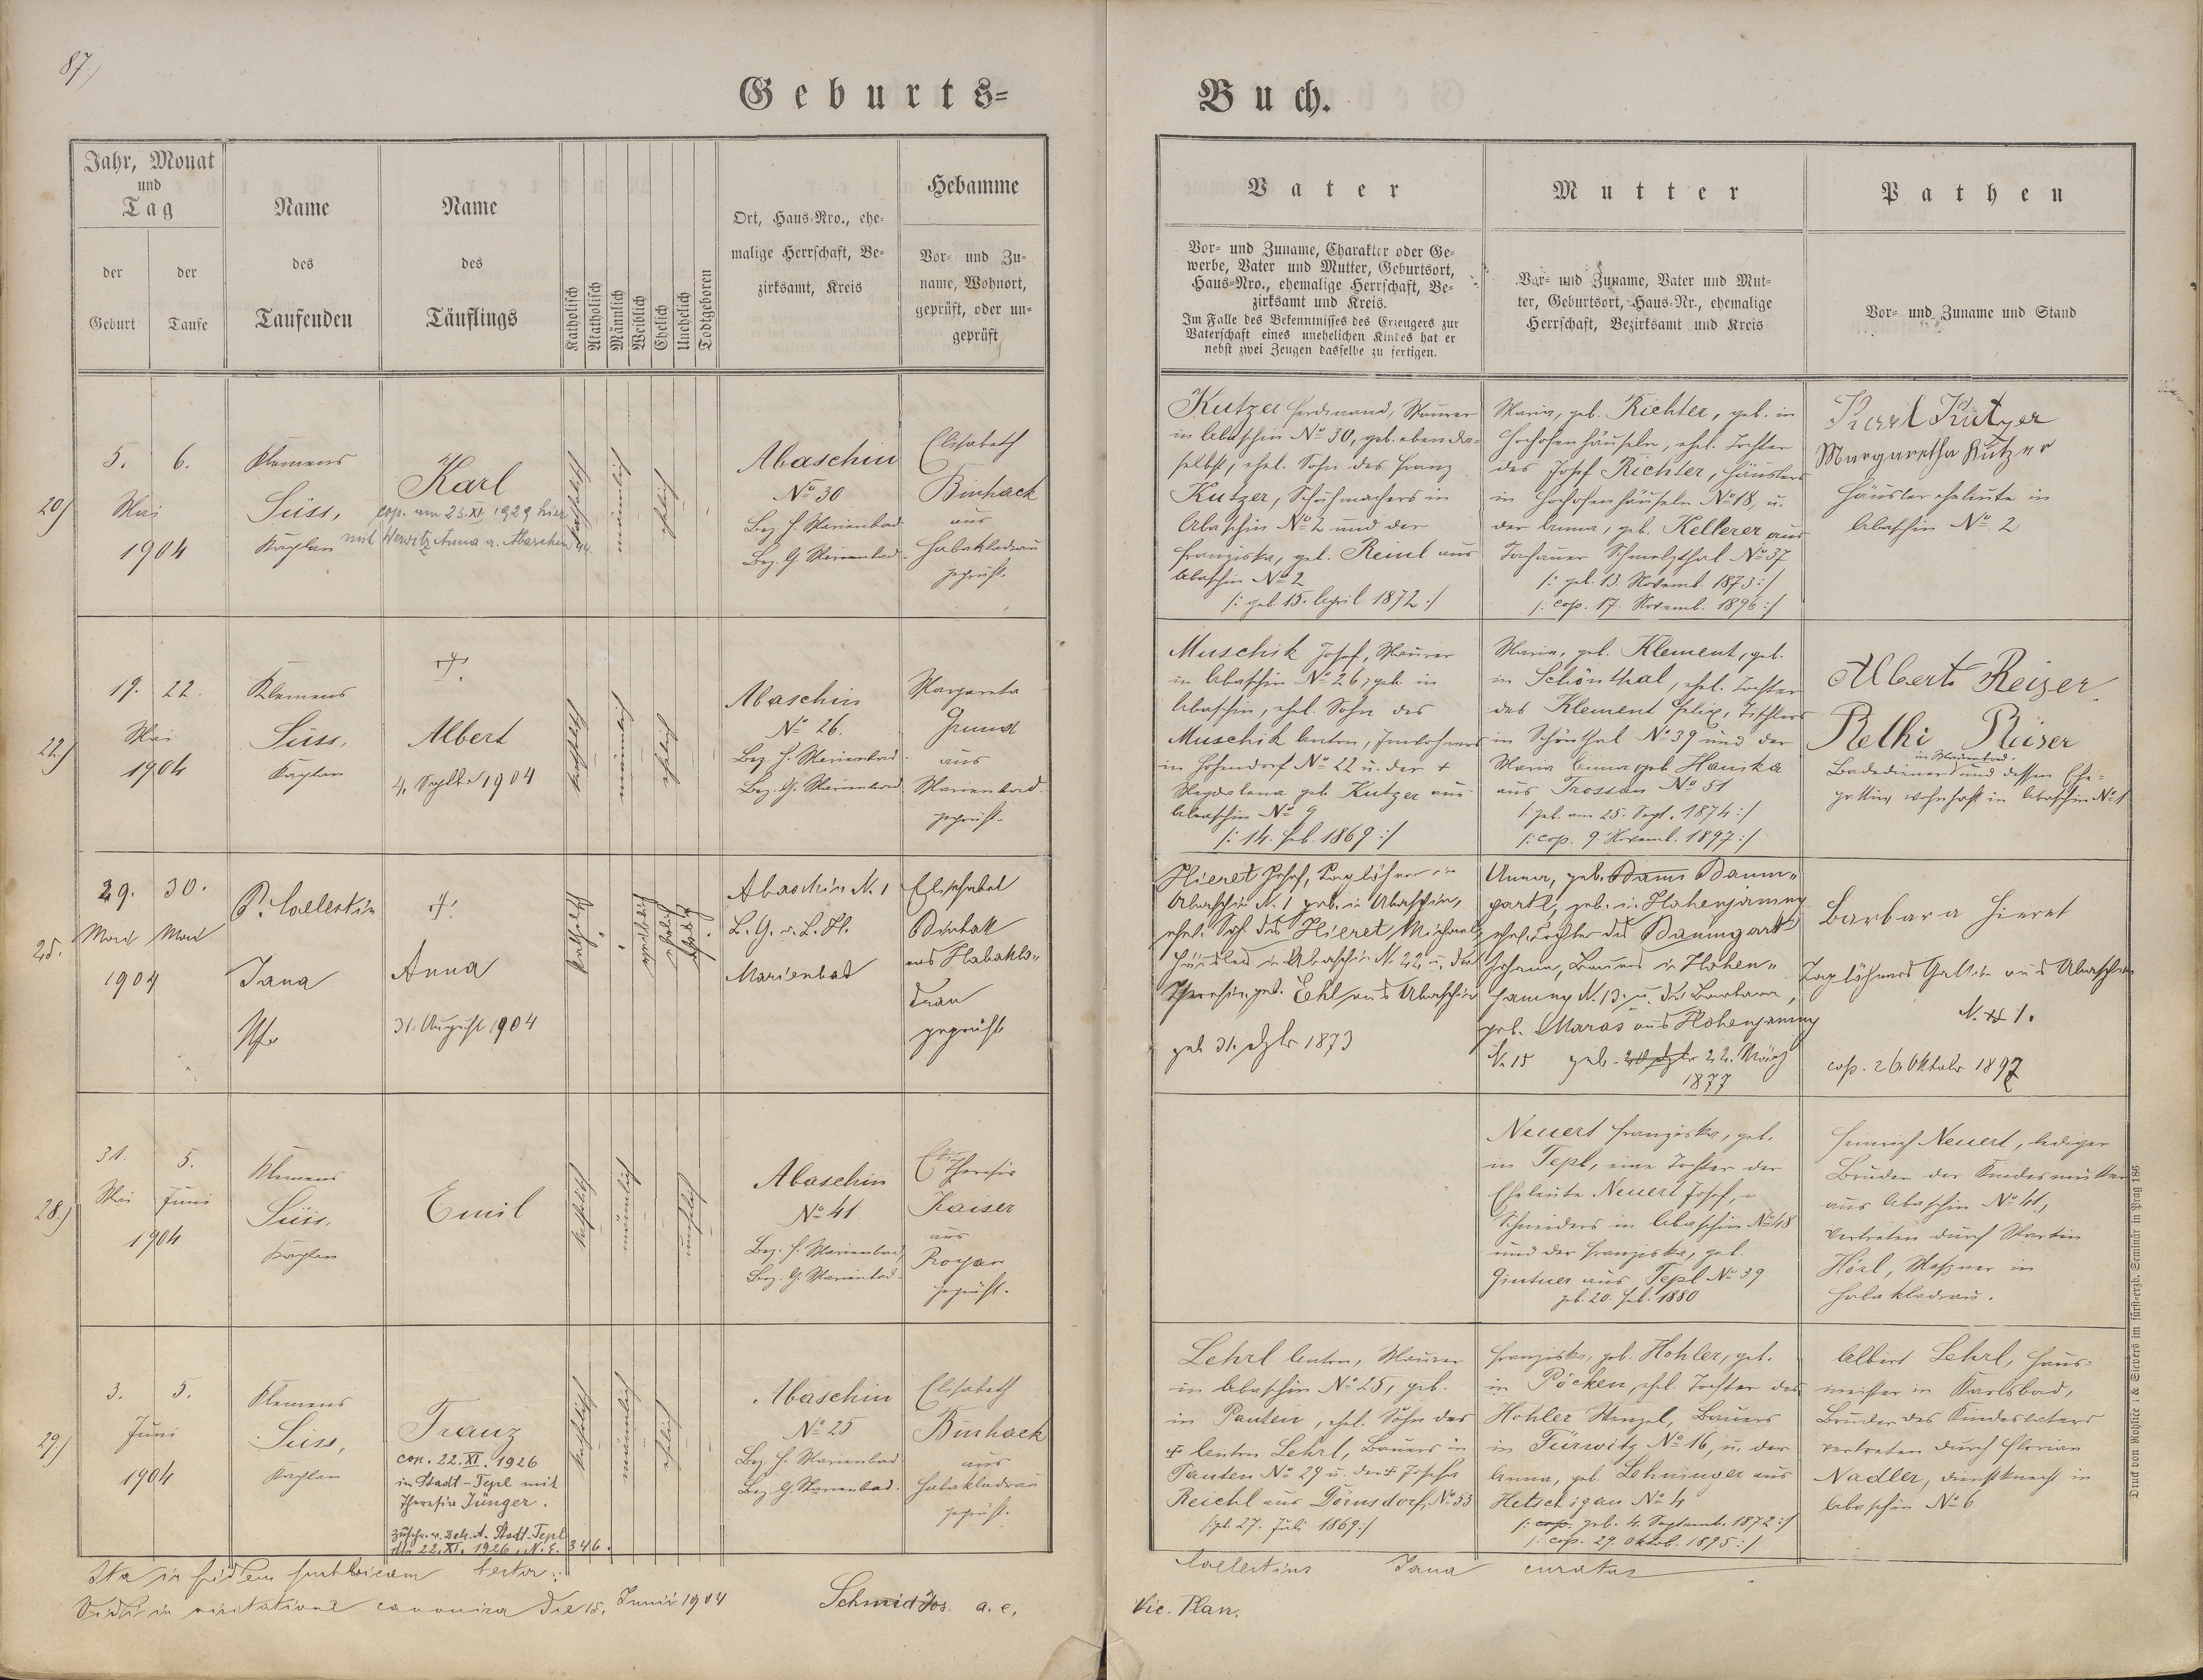 87.)
Geburts=
Buch.
Jahr, Monat
und
Tag
der
Geburt
der
Taufe
Name
des
Taufenden
Name
des
Täuflings
Katholisch
Akatholisch
Männlich
Weiblich
Ehelich
Unehelich
Todtgeboren
Ort, Haus-Nro., ehe-
malige Herrschaft, Be-
zirksamt, Kreis
Hebamme
Vor- und Zu-
name, Wohnort,
geprüft, oder un-
geprüft
Vater
Vor- und Zuname, Charakter oder Ge-
werbe, Vater und Mutter, Geburtsort,
Haus-Nro., ehemalige Herrschaft, Be-
zirksamt und Kreis.
Im Falle des Bekenntnisses des Erzeugers zur
Vaterschaft eines unehelichen Kindes hat er
nebst zwei Zeugen dasselbe zu fertigen.
Mutter
Vor- und Zuname, Vater und Mut-
ter, Geburtsort, Haus-Nr., ehemalige
Herrschaft, Bezirksamt und Kreis
Pathen
Vor- und Zuname und Stand
20)
5. 6.
Mai
1904
Klemens
Süss,
Kaplan
Karl
cop. am 23.XI. 1929 hier
mit Herwitz Anna a. Abaschin 44.
katholisch
männlich
ehelich
Abaschin
No 30
Bez. H. Marienbad
Bez. G. Marienbad
Elisabeth
Binhack
aus
Habakladrau
geprüft.
Kutzer Ferdinand, Maurer
in Abaschin No 30, geb. ebenda-
selbst, ehel. Sohn des Franz
Kutzer, Schuhmachers in
Abaschin No 2 und der
Franziska, geb. Reinl aus
Abaschin No 2
/: geb. 15. April 1872 :/
Maria, geb. Richter, geb. in
Hochofenhäuseln, ehel. Tochter
des Josef Richter, Häuslers
in Hochofenhäuseln No 18, u.
der Anna, geb. Kellerer aus
Tachauer Schmelzthal No 37
/: geb. 13. Novemb. 1873 :/
/: cop. 17. Novemb. 1896 :/
Karl Kutzer
Margaretha Kutzer
Häuslereheleute in
Abaschin No 2
22.)
19. 22.
Mai
1904
Klemens
Süss,
Kaplan
†
Albert
4. Septbr 1904
katholisch
männlich
ehelich
Abaschin
No 26.
Bez. H. Marienbad
Bez. G. Marienbad
Margareta
Grund
aus
Marienbad
geprüft.
Muschik Josef, Maurer
in Abaschin No 26, geb. in
Abaschin, ehel. Sohn des
Muschik Anton, Inwohners
in Hohendorf No 22 u. der †
Magdalena geb. Kutzer aus
Abaschin No 9
/: 14. Feb. 1869 :/
Maria, geb. Klement, geb.
in Schönthal, ehel. Tochter
des Klement Felix, Tischlers
in Schönthal No 39 und der
Maria Anna geb. Hanika
aus Trossau No 51
/: geb. am 25. Sept. 1874 :/
/: cop. 9. Novemb. 1897 :/
Albert Reiser
Relhi Reiser
in Marienbad.
Badediener und dessen Ehe-
gattin, wohnhaft in Abaschin No 1
25.
29. 30.
Mai Mai
1904
P. Coelestin
Jana
Pfr
†
Anna
31. August 1904
katholisch
weiblich
ehelich
Abaschin N. 1
B. G. u. B. H.
Marienbad
Elisabet
Binhak
aus Habakla-
drau
geprüft
Hieret Josef, Taglöhner in
Abaschin N. 1 geb. in Abaschin,
ehel. Sohn des Hieret Michael,
Häusler in Abaschin N. 22 u. der
Theresia, geb. Ehl aus Abaschin
geb. 31. 1873
Anna, geb. Baum-
gartl, geb. in Hohenjamny
ehel. Tochter des Baumgartl
Johann, Bauers in Hohen-
jamny N. 13. u. der Barbara,
geb. Maras aus Hohenjamny
N. 15 geb. 22. März
1877
Barbara Hieret
Taglöhners Gattin aus Abaschin
N. 1.
cop. 26 Oktober 1897
28.)
31. 5.
Mai Juni
1904
Klemens
Süss,
Kaplan
Emil
katholisch
männlich
unehelich
Abaschin
No 41
Bez. H. Marienbad,
Bez. G. Marienbad.
Theresia
Kaiser
aus
Royau
geprüft.
Neuert Franziska, geb.
in Tepl, eine Tochter der
Eheleute Neuert Josef,
Schneiders in Abaschin No 48
und der Franziska, geb.
Gintner aus Tepl No 39
geb. 20. Feb. 1880
Heinrich Neuert, lediger
Bruder der Kindesmutter
aus Abaschin No 41,
vertreten durch Martin
Hörl, Meßner in
Habakladrau.
29)
3. 5.
Juni
1904
Klemens
Süss,
Kaplan
Franz
cop. 22. XI. 1926
in Stadt-Tepl mit
Theresia Jünger.
Zuschr. v. Dek. A. Stadt-Tepl
dto 22. XI. 1926, N.E. 346.
katholisch
männlich
ehelich
Abaschin
No 25
Bez. H. Marienbad
Bez. G. Marienbad.
Elisabeth
Binhack
aus
Habakladrau
geprüft.
Lehrl Anton, Maurer
in Abaschin No 25, geb.
in Pauten, ehel. Sohn des
† Anton Lehrl, Bauers in
Pauten No 29 u. der † Josefa
Reichl aus Dörnsdorf, No 53
/: geb. 27. Juli 1869 :/
Franziska, geb. Hohler, geb.
in Pöcken, ehel. Tochter des
Hohler Wenzel, Bauers
in Türwitz No 16, u. der
Anna, geb. Lehninger aus
Hetschigau No 4
/: cop. geb. 4. Septemb. 1872 :/
/: cop. 29. Oktob. 1895 :/
Albert Lehrl, Haus-
meister in Karlsbad,
Bruder des Kindesvaters
vertreten durch Florian
Nadler, Dienstknecht in
Abaschin No 6
Ita in fidem testor:
Coelestinus Jana curatus
Vidi in visitatione canonica die 15. Junii 1904
Schmid Jos. a. e.
Vic. Plan.
Druck von Rohliček & Sievers im fürst-erzb. Seminär in Prag 186